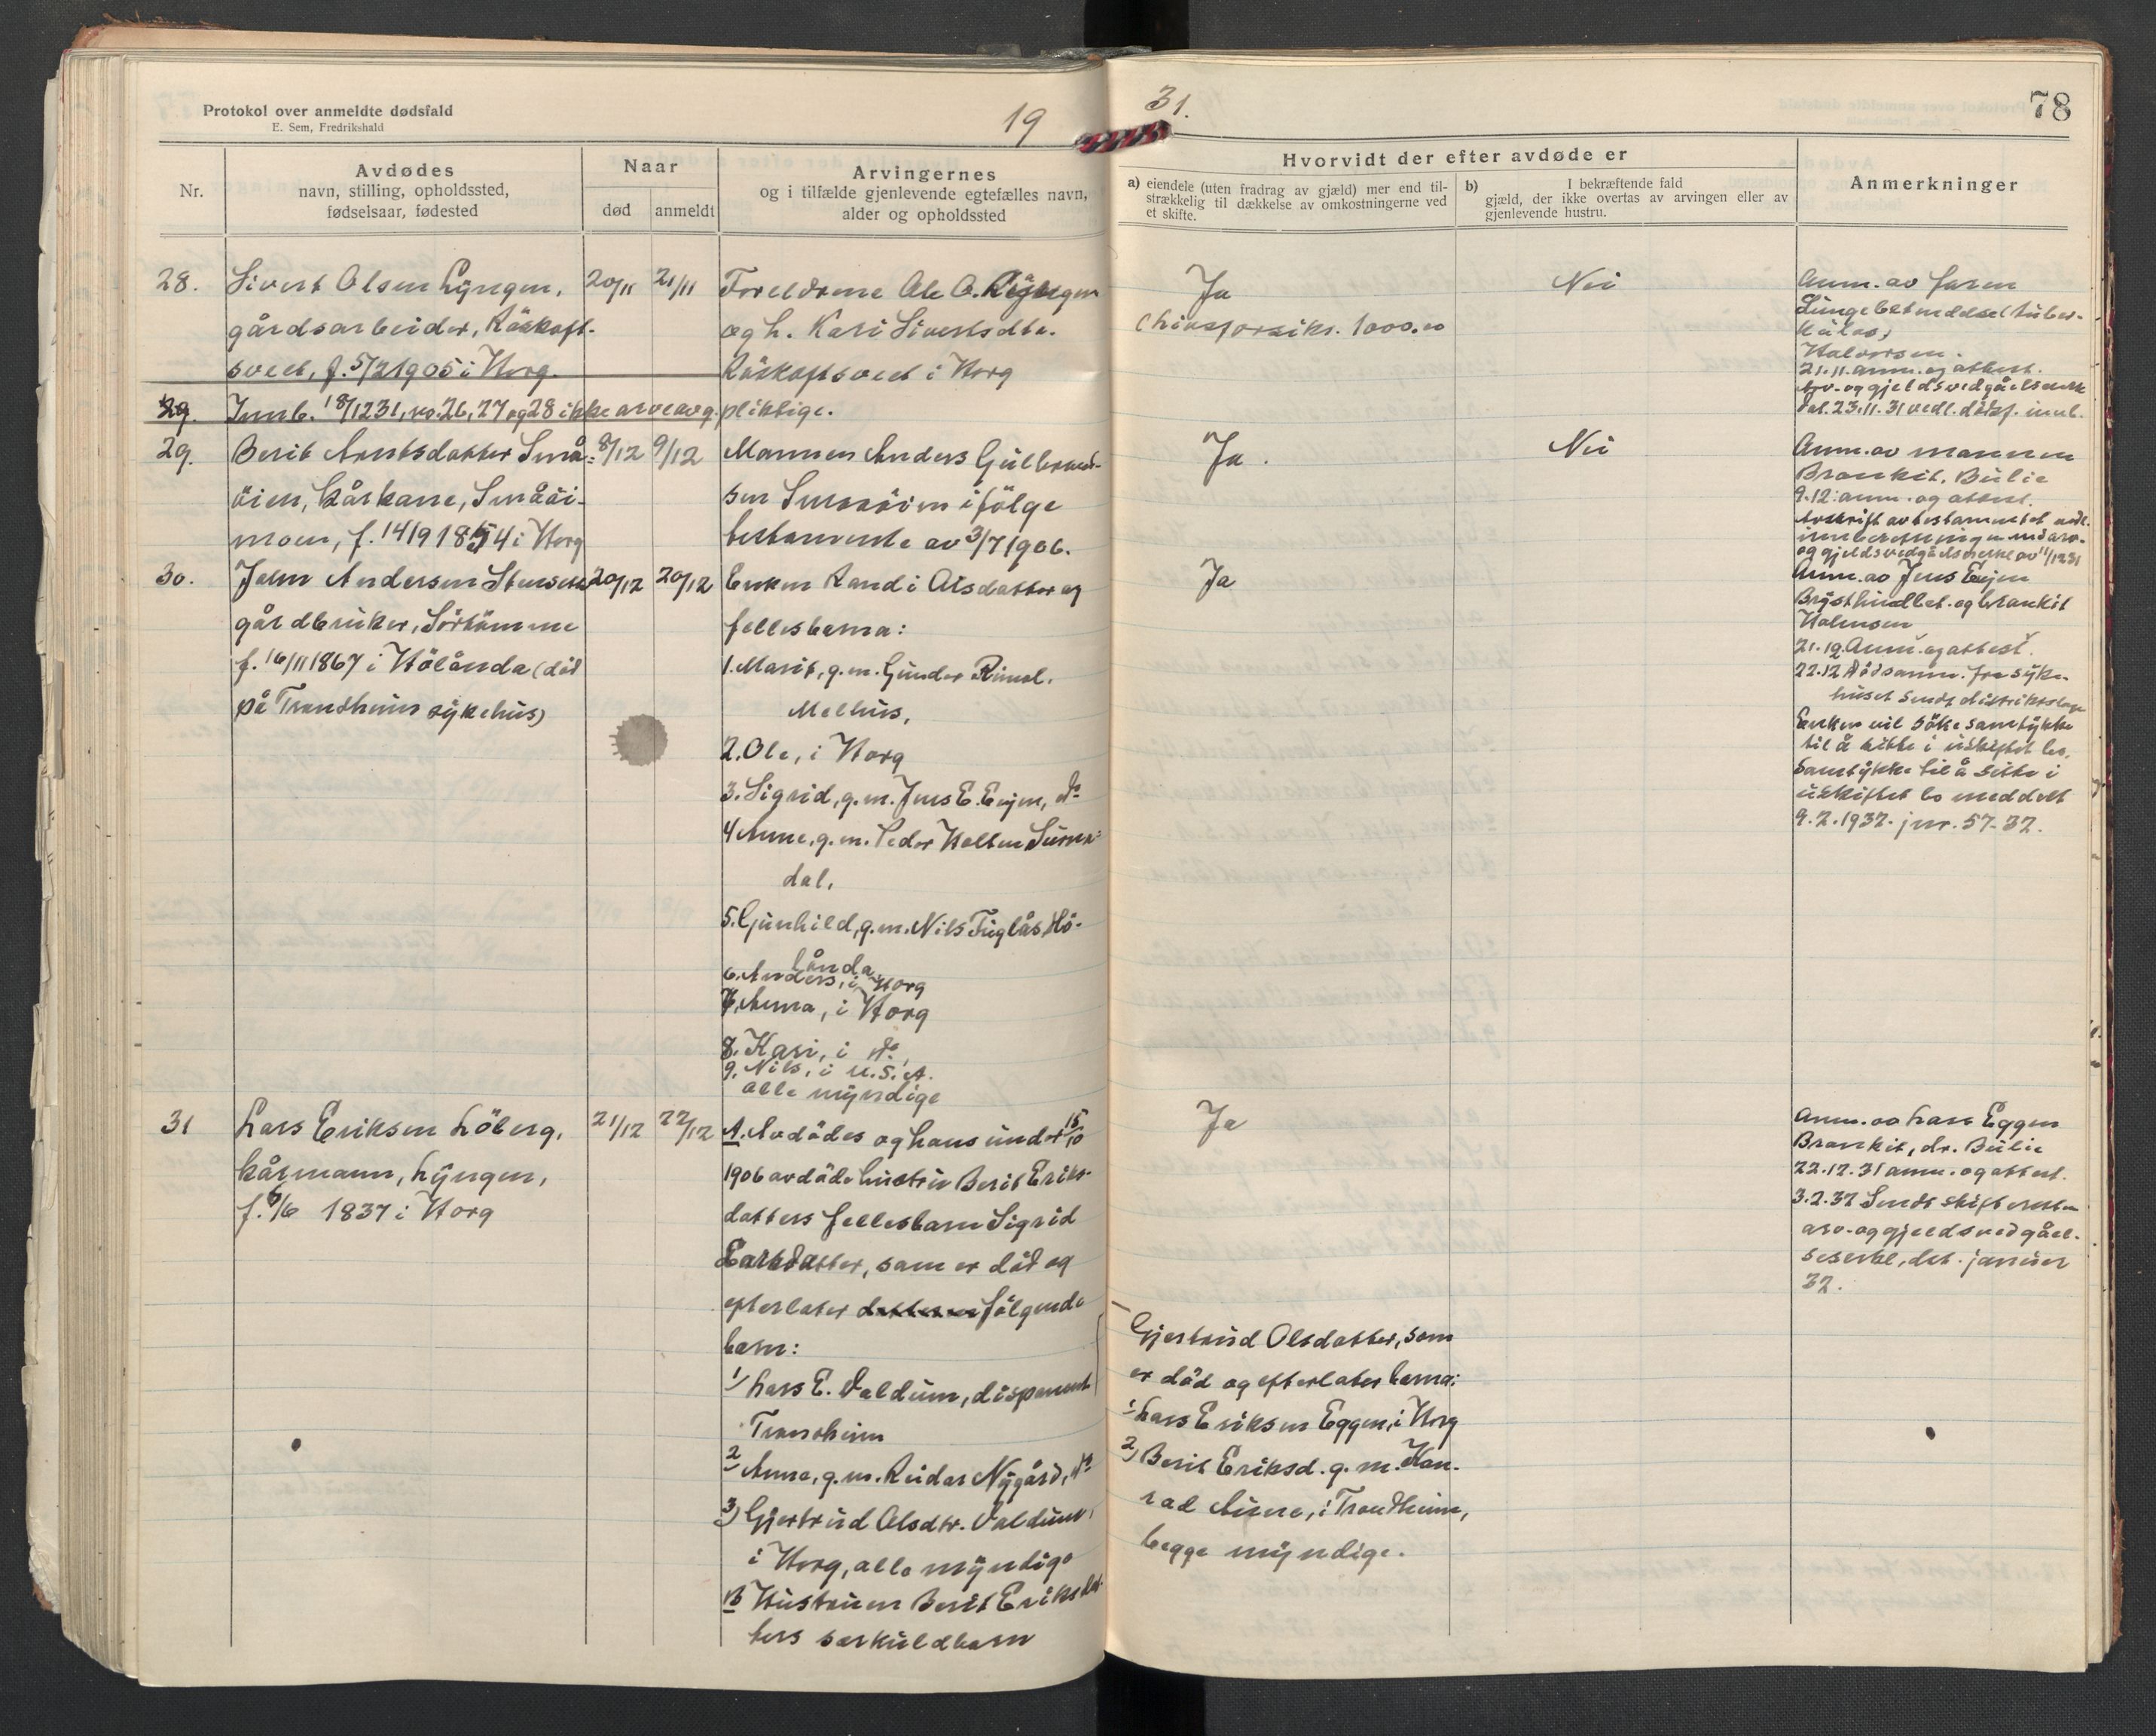 Protokol over anmeldte dødsfald
E. Sem, Fredrikshald
19
31.
78
Nr.
Avdødes
navn, stilling, opholdssted,
fødselsaar, fødested
Naar
død
anmeldt
Arvingernes
og i tilfælde gjenlevende egtefælles navn,
alder og opholdssted
Hvorvidt der efter avdøde er
a) eiendele (uten fradrag av gjæld) mer end til-
strækkelig til dækkelse av omkostningerne ved
et skifte.
b) I bekræftende fald
gjæld, der ikke overtas av arvingen eller av
gjenlevende hustru.
Anmerkninger
28.
Sivert Olsen Lyngen,
gårdsarbeider, Röskaft-
sveet, f. 5/2 1905 i Horg.
20/11
21/11
Foreldrene Ole O. Lyngen
og h. Kari Sivertsdtr.
Röskaftsveet i Horg
Ja
(Livsforsikr. 1000.00
Nei
Anm. av faren
Lungebetendelse (tuber-
kulos)
Halvorsen.
21.11. anm. og attest.
Arv- og gjeldsvedgåelseserkl
dat. 23.11.31 vedl. dödsf. innb.
29.
Innb. 18/12 31, no. 26, 27 og 28 ikke arveavg.pliktige.
29.
Berit Arntsdatter Små-
öien, kårkone, Småöi-
moen, f. 14/9 1854 i Horg
8/12
9/12
Mannen Anders Gulbrand-
sen Småöien ifölge
testamente av 3/7 1906.
Ja.
Nei
Anm. av mannen
Bronkit, Bülie
9.12: anm. og attest.
Avskrift av testamentet vedl.
innberetningen med arv-
og gjeldsvedgåelseserkl av 11/12 31
30.
John Andersen Stensen
gårdbruker, Sörtömme
f. 16/11 1867 i Hölånda (död
på Trondheim sykehus)
20/12
20/12
Enken Randi Olsdatter og
fellesbarna:
1. Marit, g.m. Gunder Rimol,
Melhus,
2. Ole, i Horg
3. Sigrid, g.m. Jens E. Eggen, do
4 Anne, g.m. Peder Holten Surna-
dal,
5. Gunhild, g.m. Nils Fuglås, Hö-
lånda
6. Anders, i Horg
7. Anna, i Horg
8. Kari, i do,
9. Nils, i U.S.A.
alle myndige
Ja
Anm. av Jens Eggen
Brysthinnebet. og bronkit
21.12 Anm. og attest.
22.12 Dödsanm. fra syke-
huset sendt distriktslege
Enken vil söke samtykke
til å sitte i uskiftet bo.
Samtykke til å sitte i
uskiftet bo meddelt
9.2.1932. jnr. 57-32.
31
Lars Eriksen Löberg,
kårmann, Lyngen,
f. 6/6 1837 i Horg
21/12
22/12
A. Avdödes og hans under 15/10
1906 avdöde hustru Berit Eriks-
datters fellesbarn Sigrid
Larsdatter, som er död og
efterlater datteren fölgende
barn:
1) Lars E. Valdum, disponent
Trondheim
2) Anna, g.m. Reidar Nygård, do
3) Gjertrud Olsdtr. Valdum,
i Horg, alle myndige
B Hustruen Berit Eriksdat-
ters særkuldbarn
Ja
Gjertrud Olsdatter, som
er död og efterlater barna:
1) Lars Eriksen Eggen, i Horg
2) Berit Eriksd. g.m. Kon-
rad Aune, i Trondheim,
begge myndige.
Anm. av Lars Eggen
Bronkit, dr. Bülie
22.12.31 anm. og attest.
3.2.32 Sendt skifteretten
arv- og gjeldsvedgåel-
seserkl, dat. januar
32.